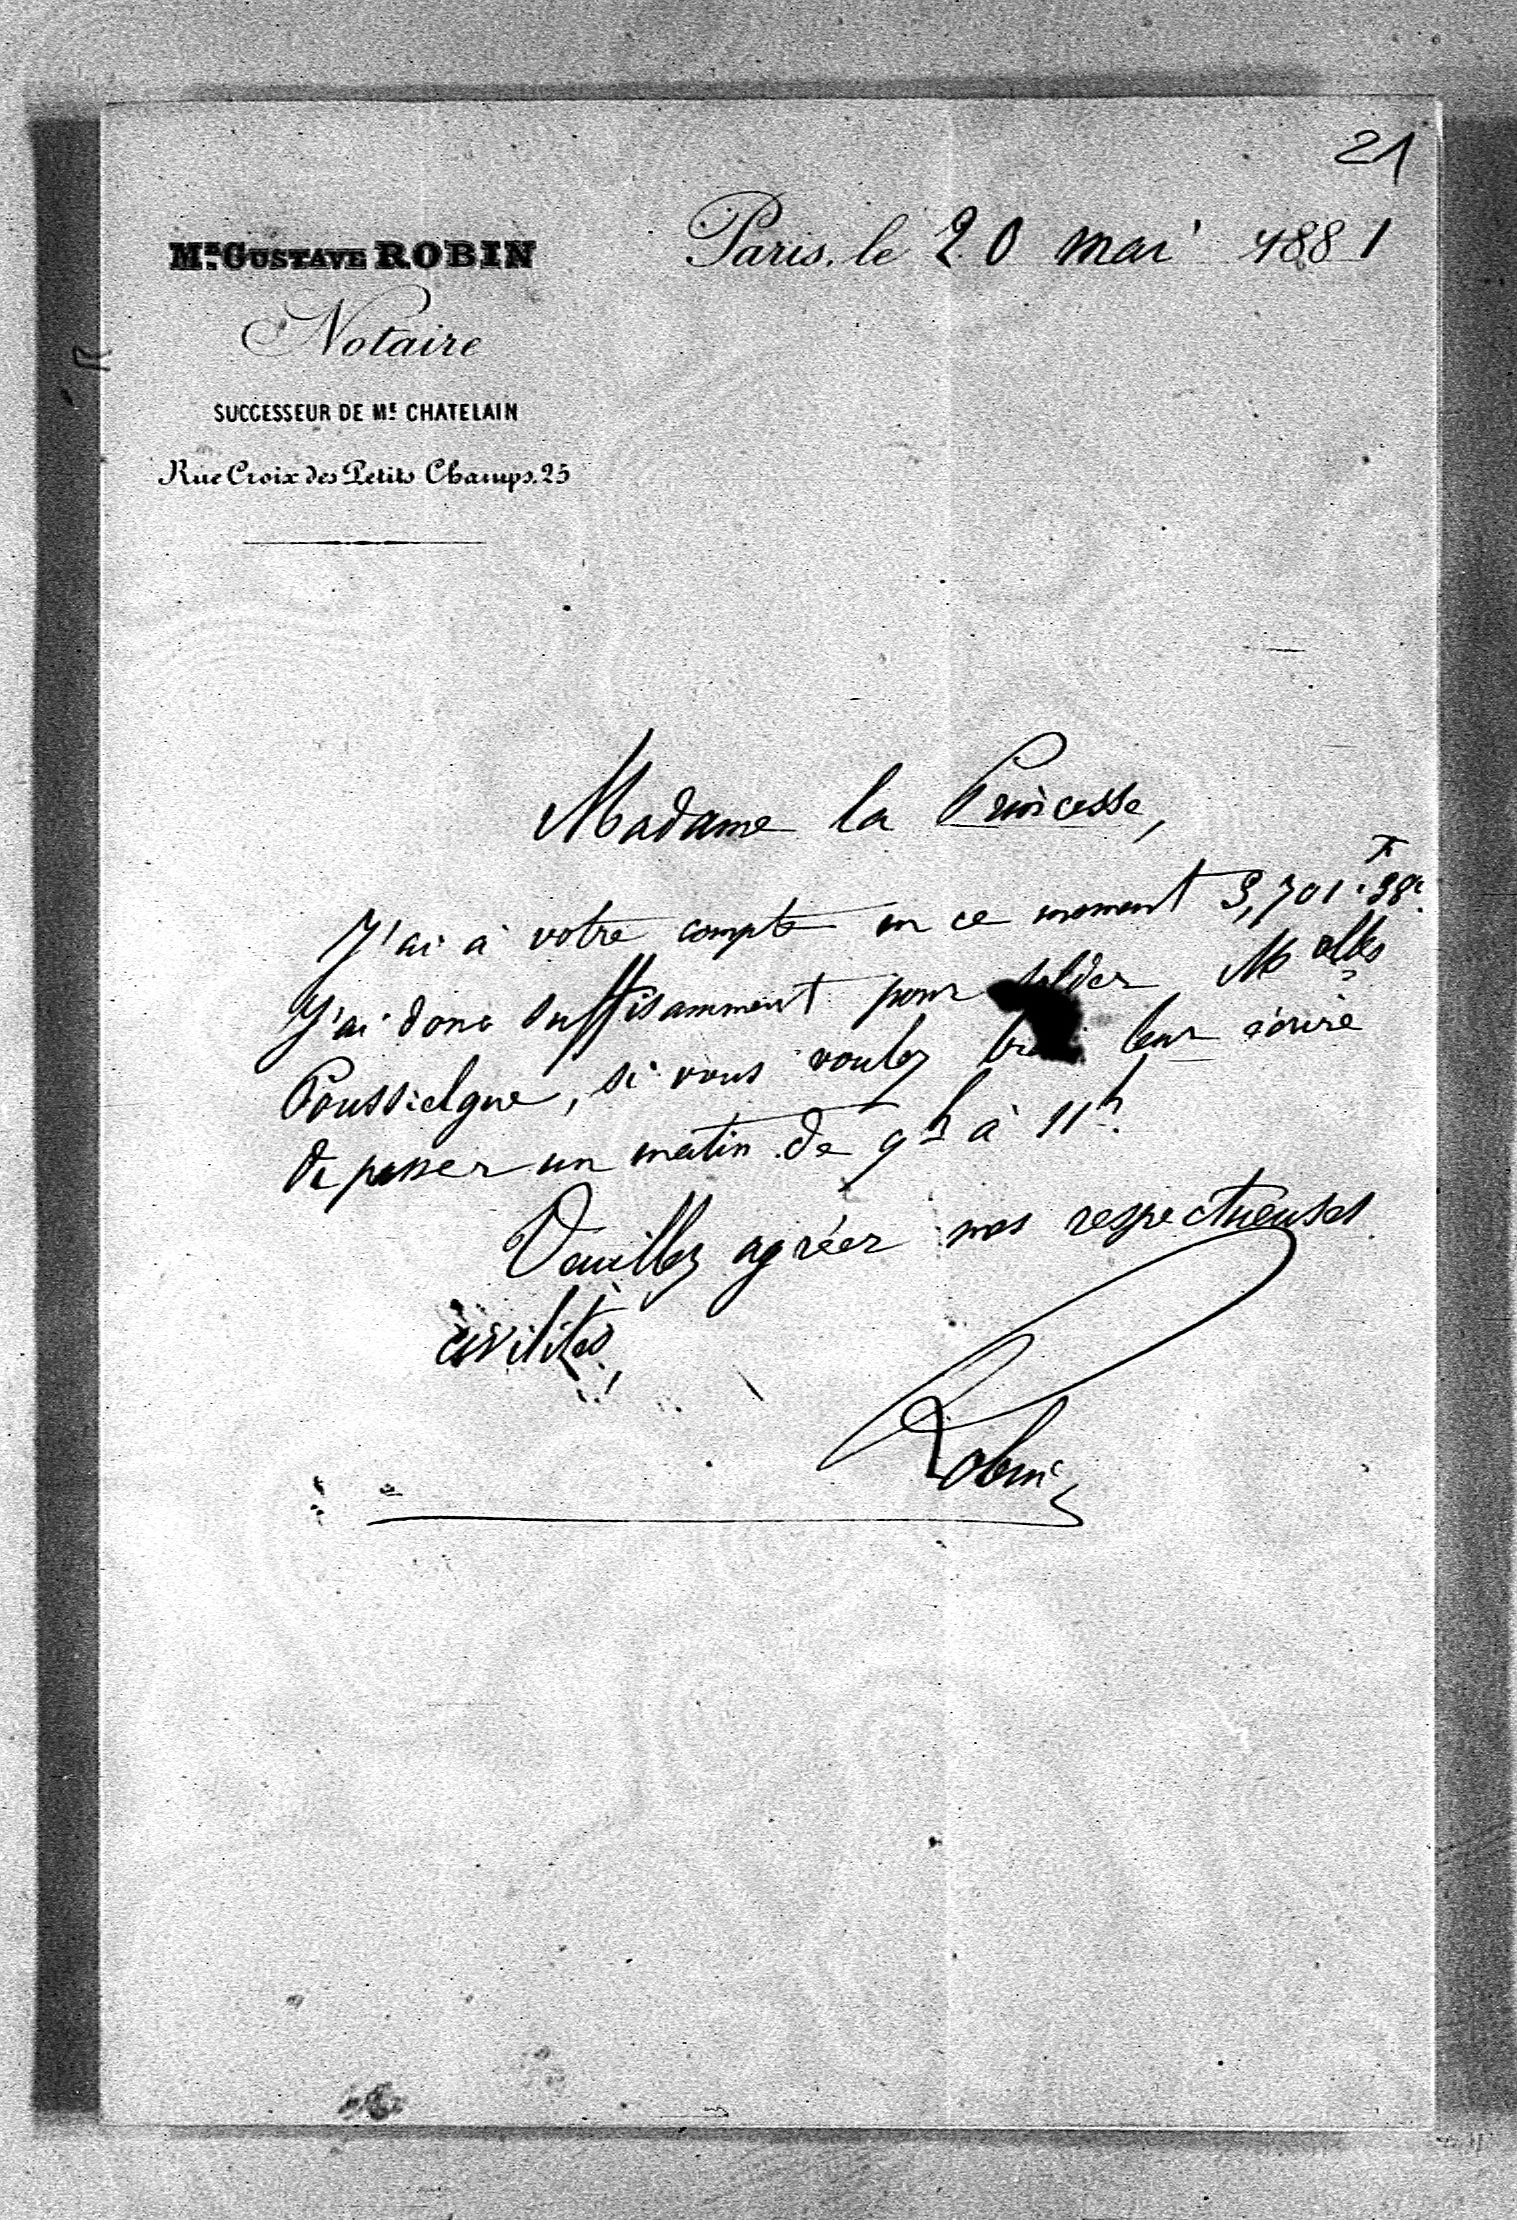 21
Mᴱ. GUSTAVE ROBIN
Notaire
SUCCESSEUR DE Mᴱ CHATELAIN
Rue Croix des Petits Champs. 25
Paris, le 20 mai 1881
Madame la Princesse,
J'ai à votre compte en ce moment 3,701 f. 38 c.
J'ai donc suffisamment pour solder Melles
Poussielgue, si vous voulez bien leur écrire
de passer un matin de 9h à 11h.
Veuillez agréer mes respectueuses
civilités,
Robin